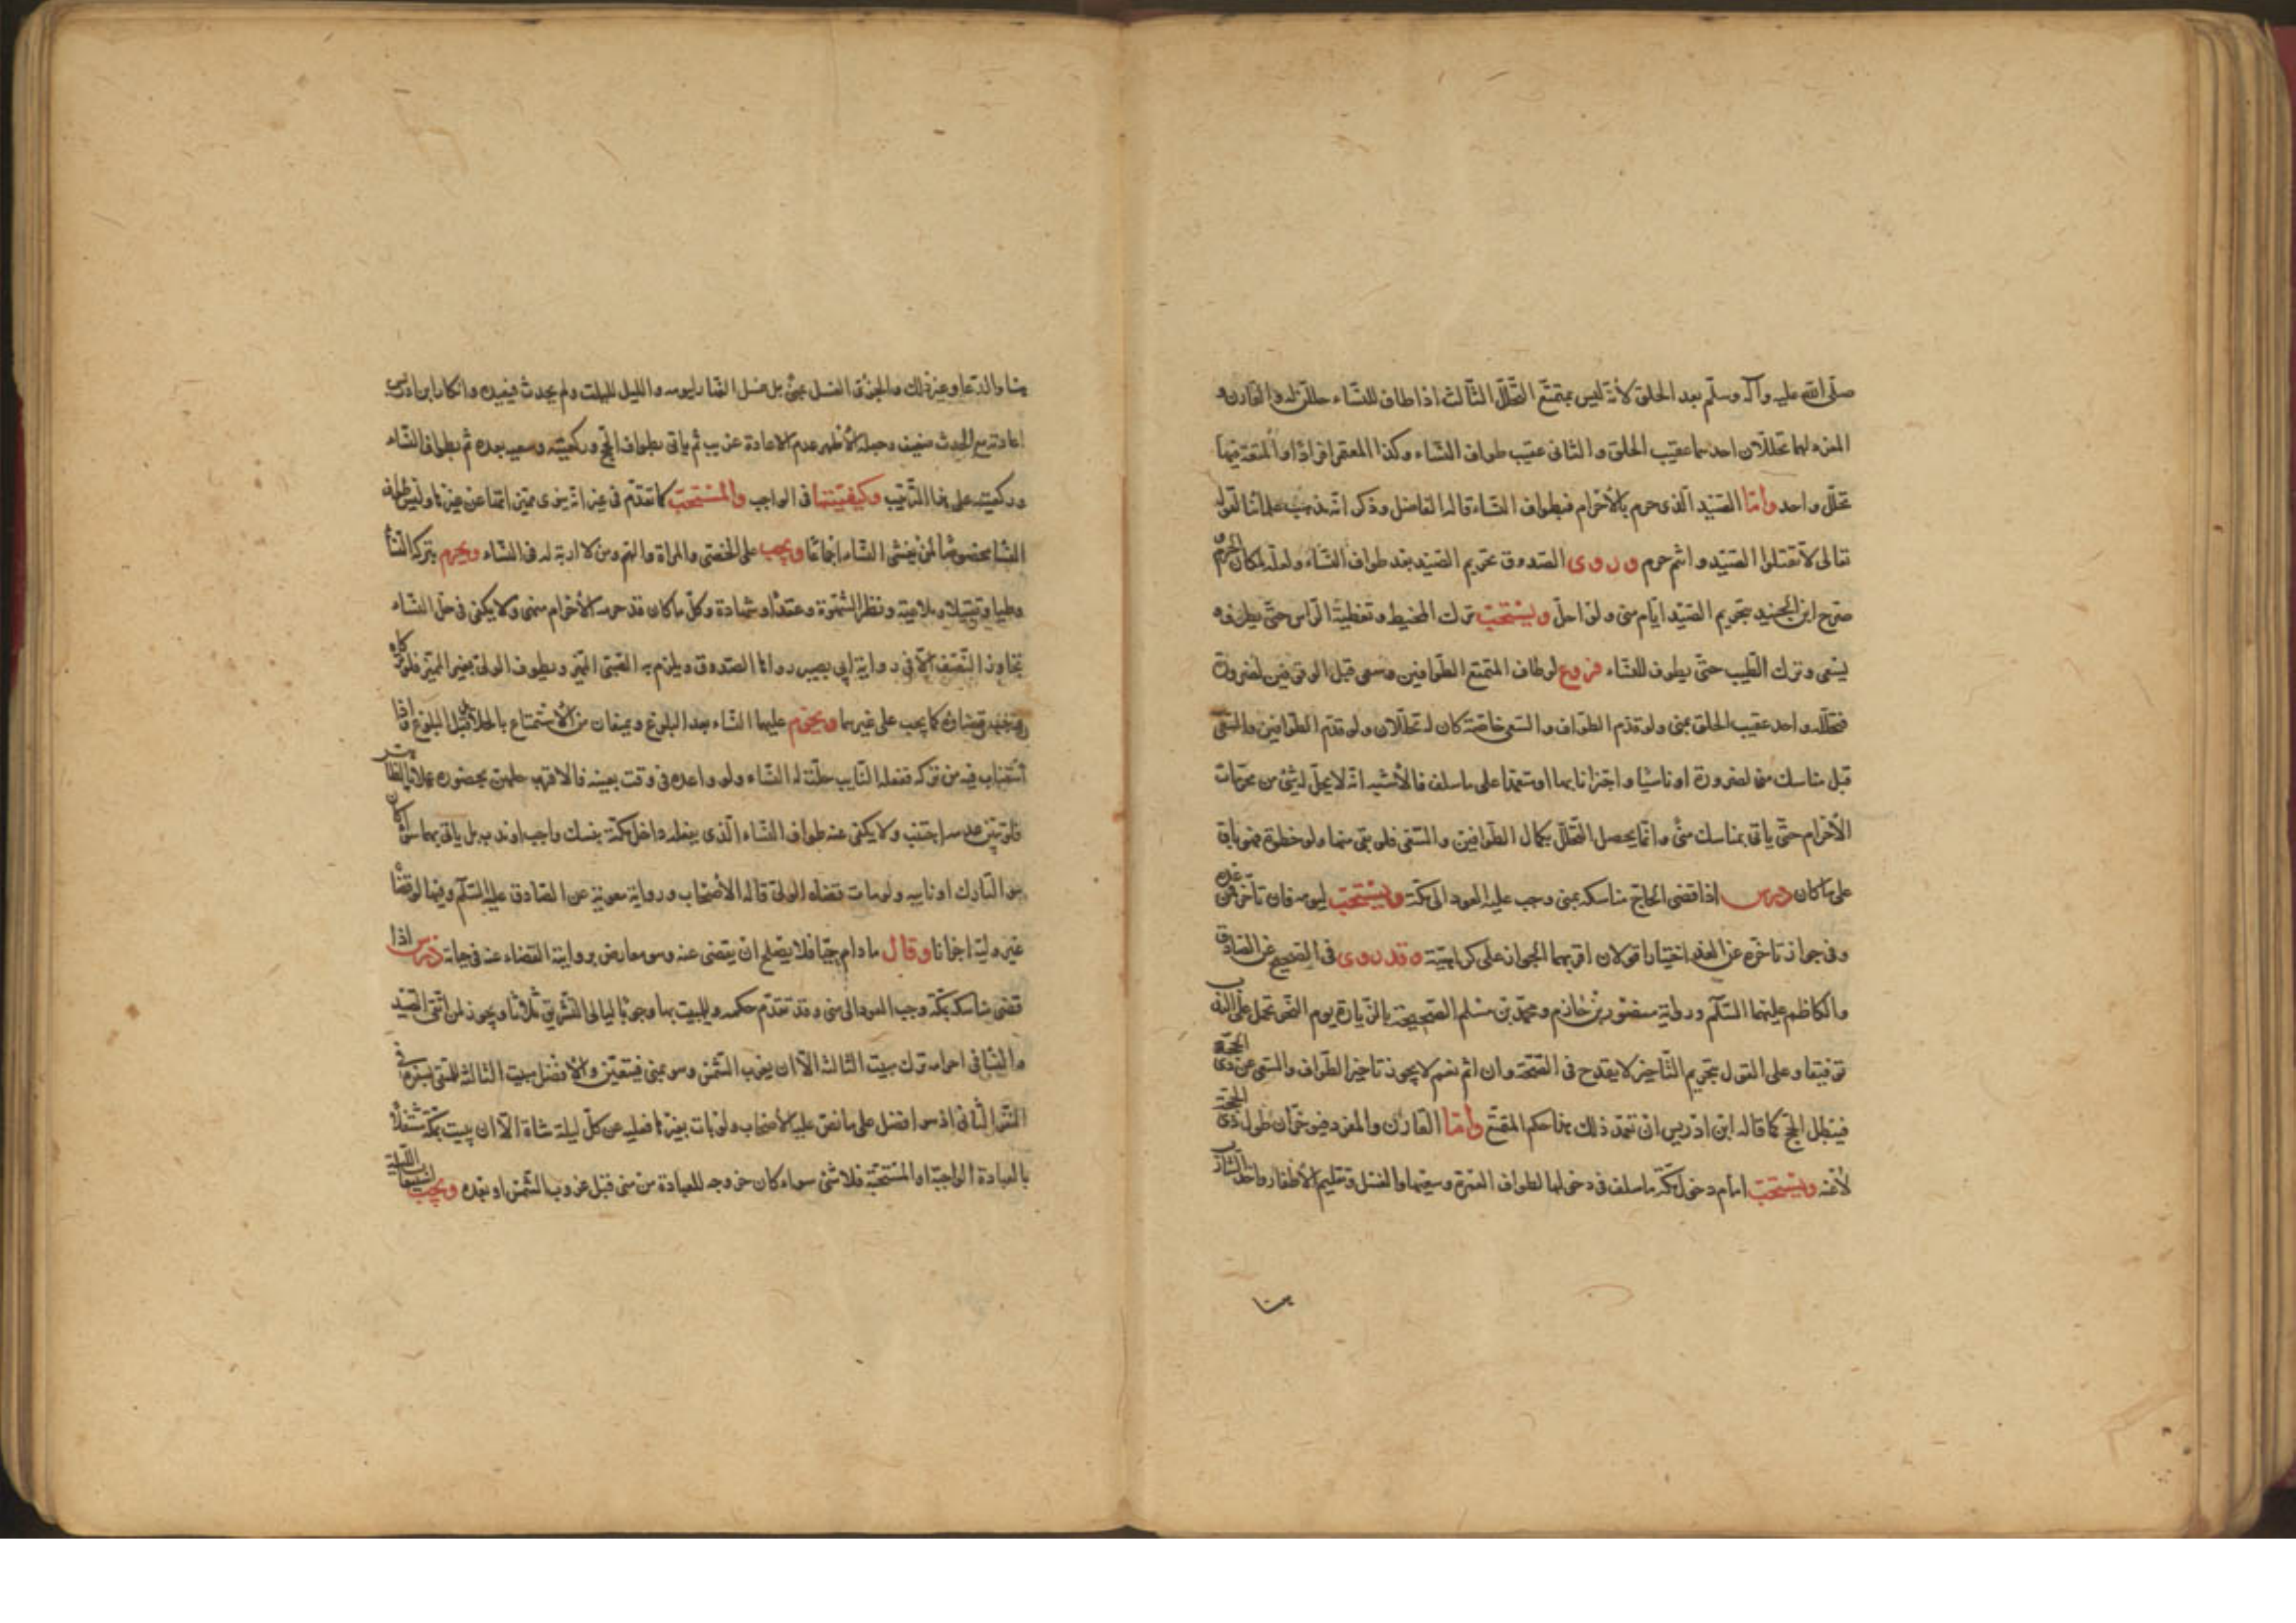 صلى الله عليه وآله وسلم بعد الحلق لأنه ليس بمتمتع التحلل الثالث اذا طاف للنساء حللن له والقارن و
المفرد لهما تحللان احدهما عقيب الحلق والثاني عقيب طواف النساء وكذا المعتمر افرادا والمتعة فيها
تحلل واحد وأما الصيد الذى حرم بالأحرام فبطواف النساء قاله الفاضل وذكر انه مذهب علمائنا لقوله
تعالى لا تقتلوا الصيد وانتم حرم وروى الصدوق تحريم الصيد بعد طواف النساء ولعله لمكان الحرم
صرح ابن الجنيد بتحريم الصيد ايام منى ولو احل ويستحب ترك المخيط وتغطية الراس حتى يطوف و
يسعى وترك الطيب حتى يطوف للنساء فروع لو طاف المتمتع الطوافين وسعى قبل الوقوفين لضرورة
فتحلله واحد عقيب الحلق بمنى ولو قدم الطواف والسعى خاصة كان له تحللان ولو قدم الطوافين والسعى
قبل مناسك منى لضرورة او ناسيا واجتزانا بهما او متعمدا على ما سلف فالأشبه انه لا يحل له شئ من محرمات
الأحرام حتى ياتى بمناسك منى وانما يحصل التحلل بكمال الطوافين والسعى فلو بقى منها ولو خطوة فهو باق
على ما كان درس اذا قضى الحاج مناسكه بمنى وجب عليه العود الى مكة ويستحب ليومه فان تاخر فمن غده
وفى جواز تاخره عن الغد اختيارا قولان اقربهما الجواز على كراهية وقد روى فى الصحيح عن الصادق
والكاظم عليهما السلم ورواية منصور بن حازم ومحمد بن مسلم الصحيحة بالزيارة يوم النحر تحمل على الندب
توفيقا وعلى القول بتحريم التاخير لا يقدح فى الصحة وان اثم نعم لا يجوز تاخير الطواف والسعى عن ذى الحجة
فيبطل الحج كما قاله ابن ادريس ان تعمد ذلك هذا حكم المتمتع وأما القارن والمفرد فيؤخران طول ذى الحجة
لا عنه ويستحب امام دخول مكة ما سلف فى دخولها لطواف العمرة وسعيها والغسل وتقليم الأظفار واخذ الشارب
هنا
هنا والدعاء وغير ذلك والجزى الغسل بمنى بل غسل النهار ليومه والليل لليلته ولم يحدث فيعيده وانكار ابن ادريس
اعادته مع الحدث ضعيف وجعله الأظهر عدم الاعادة غريب ثم ياتى بطواف الحج وركعتيه وسعيه بعده ثم بطواف النساء
وركعتيه على هذا الترتيب وكيفيتها فى الواجب والمستحب كما تقدم فى غيرانه ينوى مميزاتها عن غيرها وليس طواف
النسا مخصوصا لمن يغشى النساء اجماعا ويجب على الخنثى والمراة والهم ومن لا اربة له فى النساء ويحرم بتركه النسا
وطيا وتقبيلا وملاعبة ونظرا لشهوة وعقدا وشهادة وكل ما كان قد حرمه الأحرام منهن ولا يكفى فى حل النساء
تجاوز النصف الا فى رواية ابى بصير رواها الصدوق ويلزم به الصبى المميز ويطوف الولى بغير المميز فلو تركاه
وجب قضاؤه كما يجب على غيرهما ويحرم عليهما النساء بعد البلوغ ويمنعان من الاستمتاع بالحلائل قبل البلوغ واذا
استناب فيه من تركه ففعله النايب حلت له النساء ولو واعده فى وقت بعينه فالاقرب حلهن بحضوره عملا بالظاهر
فلو تبين عدمه اجتنب ولا يكفى عنه طواف النساء الذى يفعله داخل مكة بنسك واجب او ندب بل ياتى بهما سواء كان
هو التارك او نايبه ولو مات قضاه الولى قاله الأصحاب ورواية معوية عن الصادق عليه السلم وفيها لو قضاه
غير وليه اجزانا وقال ما دام حيا فلا يصلح ان يقضى عنه وهو معارض برواية القضاء عنه فى حياته درس اذا
قضى مناسكه بمكة وجب العود الى منى وقد تقدم حكمه والمبيت بها وجوبا ليالى التشريق ثلاثا ويجوز لمن اتقى الصيد
والنسا فى احرامه ترك مبيت الثالثة الا ان يغرب الشمس وهو بمنى فيتعين والأفضل مبيت الثالثة للمتقى لينفر فى
النفر الثانى اذ هو افضل على ما نص عليه الأصحاب ولو بات بغيرها فعليه عن كل ليلة شاة الا ان يبيت بمكة مشتغلا
بالعبادة الواجبة او المستحبة فلا شئ سواء كان خروجه للعبادة من منى قبل غروب الشمس او بعده ويجب استيعاب الليلة